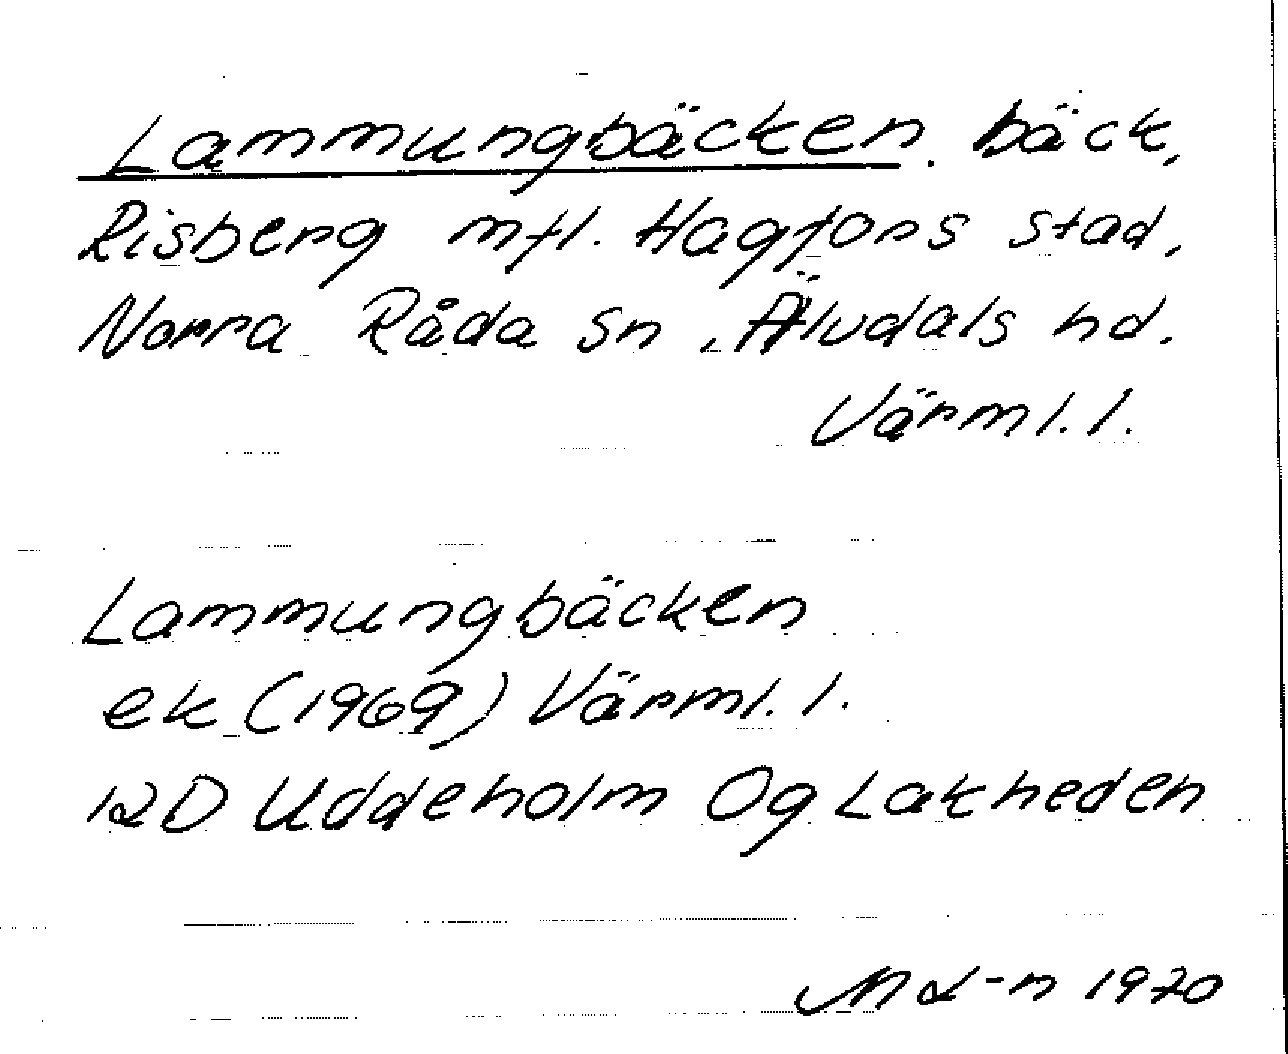 Lammungbäcken. bäck,
Risberg mfl. Hagfors stad,
Norra Råda sn, Älvdals hd.
Värml. l.
Lammungbäcken
ek (1969) Värml. l.
12D Uddeholm Og Lakheden
1970